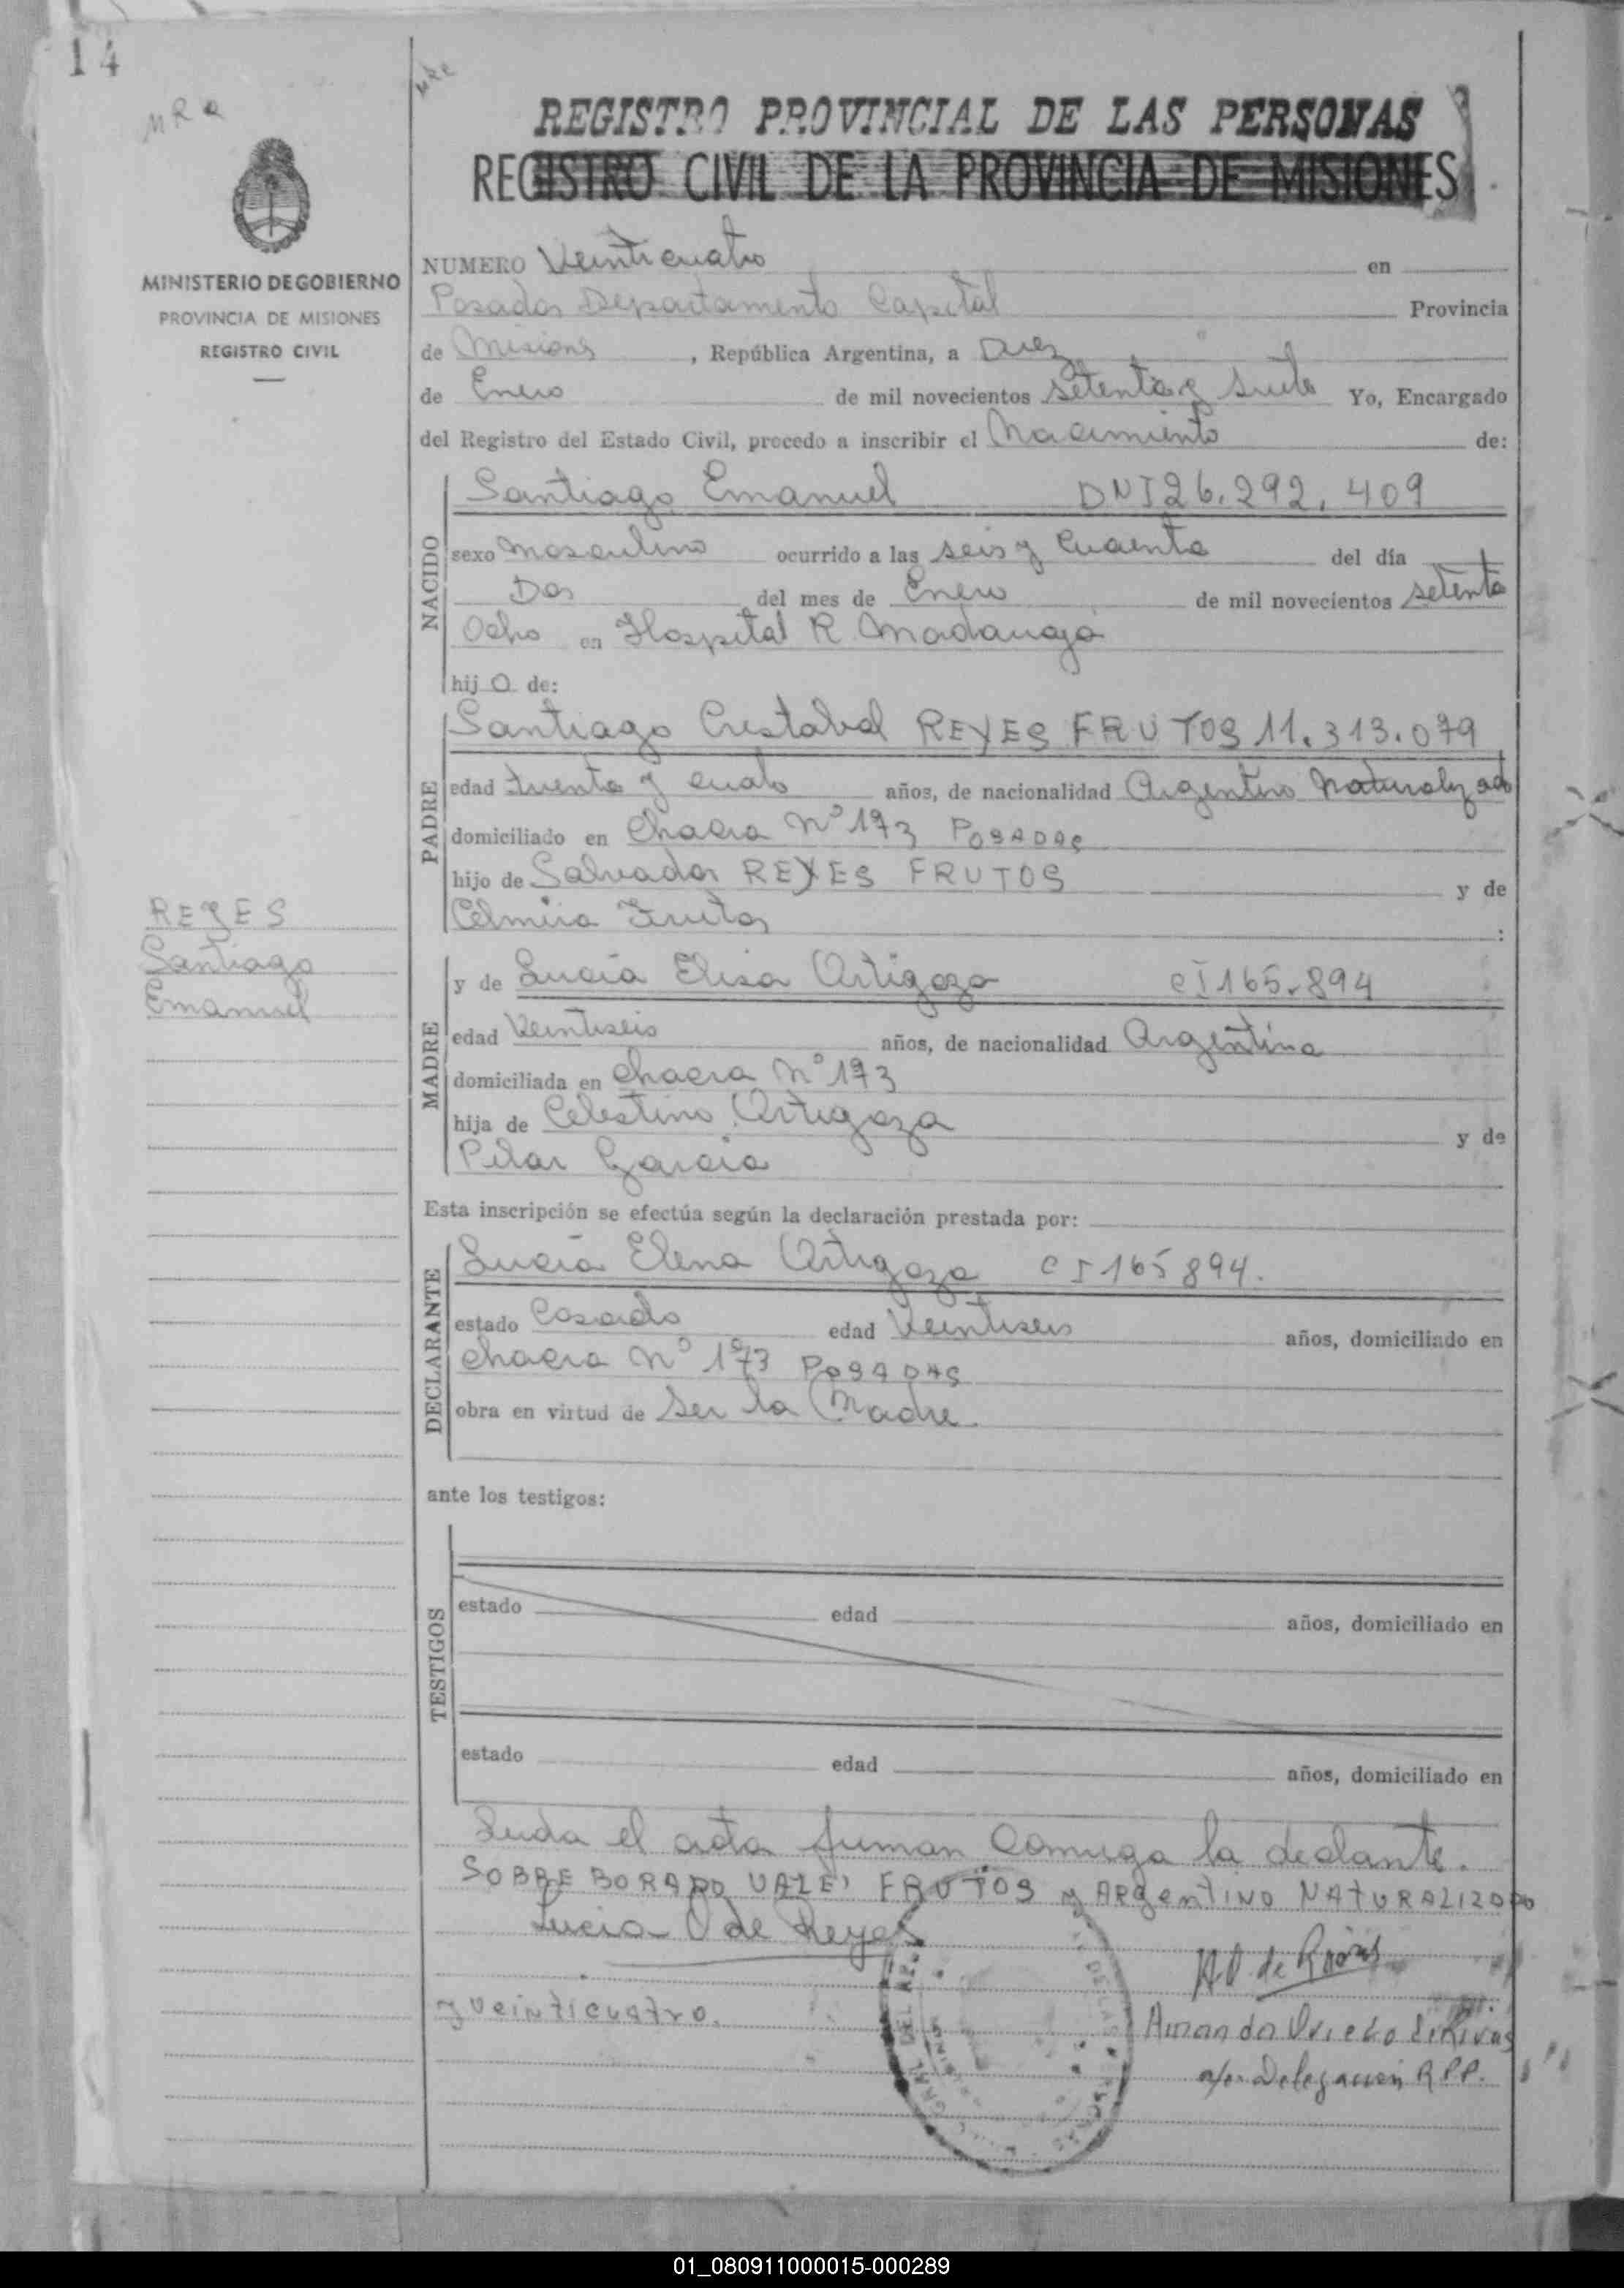 14
MRR
MRR
REGISTRO PROVINCIAL DE LAS PERSONAS
REGISTRO CIVIL DE LA PROVINCIA DE MISIONES
MINISTERIO DE GOBIERNO
PROVINCIA DE MISIONES
REGISTRO CIVIL
NUMERO Veinticuatro en
Posadas Departamento Capital Provincia
de Misiones, República Argentina, a Diez
de Enero de mil novecientos setenta y siete Yo, Encargado
del Registro del Estado Civil, procedo a inscribir el Nacimiento de:
NACIDO
Santiago Emanuel DNI 26.292.409
sexo Masculino ocurrido a las seis y cuarenta del día
Dos del mes de Enero de mil novecientos setenta
Ocho en Hospital R Madariaga
hijo de:
PADRE
Santiago Cristobal REYES FRUTOS 11.313.079
edad treinta y cuato años, de nacionalidad Argentino Naturalizado
domiciliado en Chacra Nº 173 POSADAS
hijo de Salvador REYES FRUTOS y de
Celmira Frutos :
REYES
Santiago
Emanuel
MADRE
y de Lucía Elisa Ortigoza CI 165.894
edad Veintiseis años, de nacionalidad Argentina
domiciliada en Chacra Nº 173
hija de Celestino Ortigoza y de
Pilar Garcia
Esta inscripción se efectúa según la declaración prestada por:
DECLARANTE
Lucía Elena Ortigoza CI 165894.
estado Casada edad Veintiseis años, domiciliado en
Chacra Nº 173 POSADAS
obra en virtud de Ser la Madre
ante los testigos:
TESTIGOS
estado edad años, domiciliado en
estado edad años, domiciliado en
Leida el acta firman Conmigo la declante.
SOBRE BORADO VALE: FRUTOS y ARgentINO NATURALIZADO
Lucia O de Reyes
y veinticuatro.
A.O. de Rivas
Amanda Oviedo de Rivas
Delegacion RPP.
01_080911000015-000289